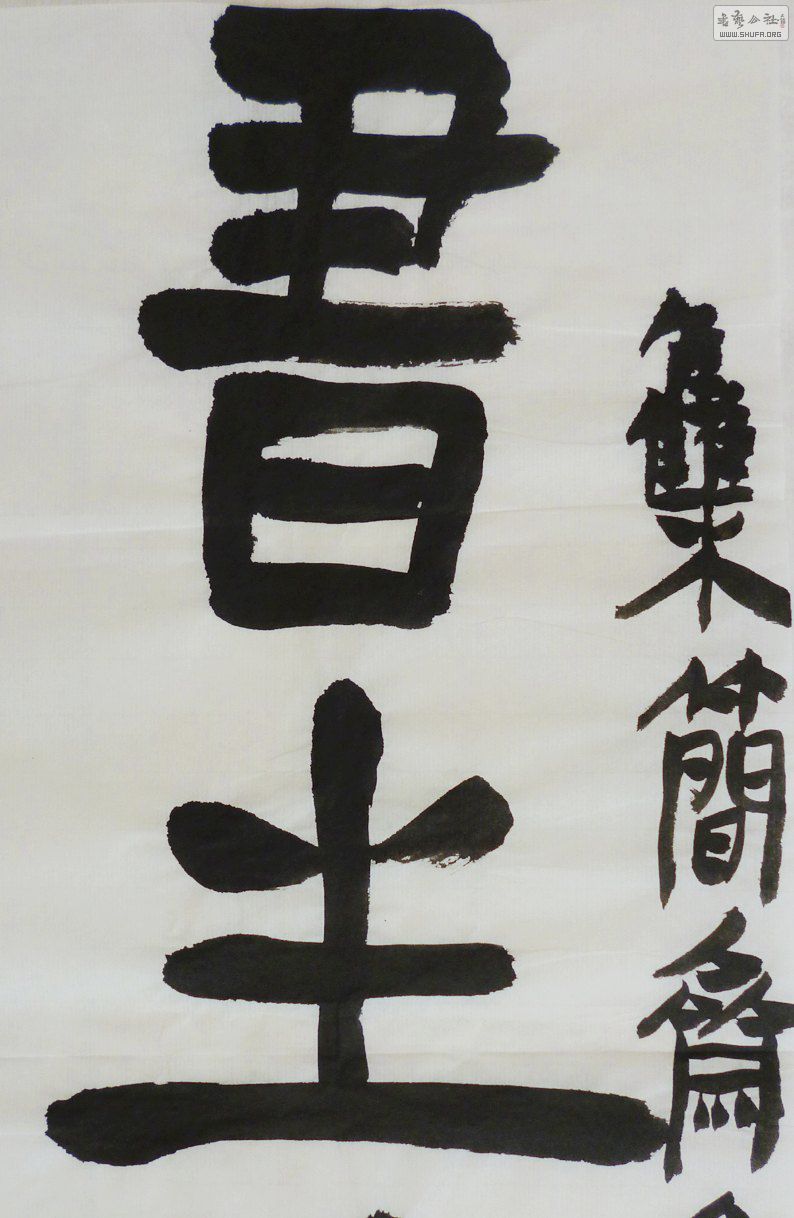 集簡齋
書生
書藝公社
WWW.SHUFA.ORG